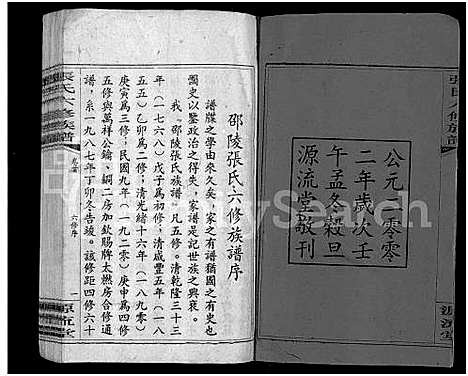 公元二零零
二年歲次壬
午孟冬穀旦
源流堂敬刊
張氏六修族譜
邵陵張氏六修族譜序
譜牒之學由來久矣家之有譜猶國之有史也
國史以鑒政治之得失家譜是記世族之興衰。
我《邵陵張氏族譜》凡五修。清乾隆三十三
年(一七六八)戊子為初修;清咸豐五年(一八
五五)乙卯為二修;清光緒十六年(一八九零)
庚寅為三修;民國九年(一九二零)庚申為四修
五修與萬祥公鑰、銅二房加欽賜牌太燃房合修通
譜,系一九八七年丁卯冬告竣。該修距四修六十
張氏六修族譜
卷首
六修序
一
源流堂